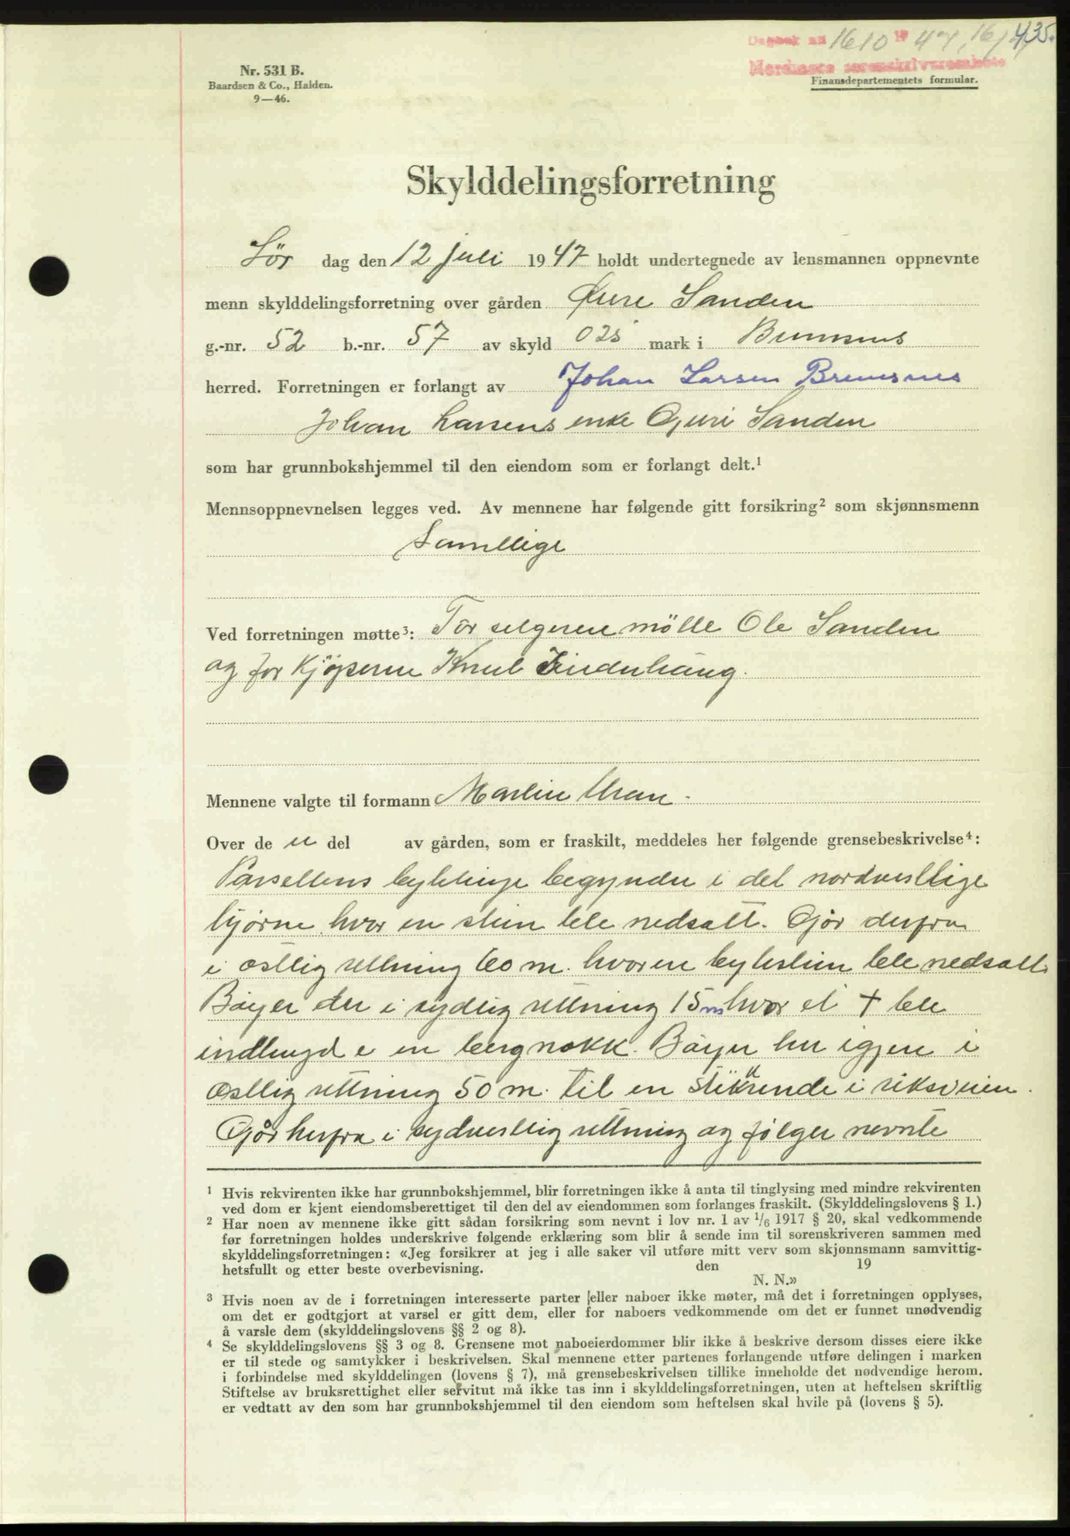 Dagbok nr 1610 19 47, 16/ 435.
Nordmøre sorenskriverembete
Nr. 531 B.
Baardsen & Co., Halden.
9—46.
Finansdepartementets formular.
Skylddelingsforretning
Lör dag den 12 juli 1947 holdt undertegnede av lensmannen oppnevnte
menn skylddelingsforretning over gården Øvre Sanden
g.-nr. 52 b.-nr. 57 av skyld 025 mark i Bremsnes
herred. Forretningen er forlangt av Johan Larsen Bremsnes
Johan Larsens enke Guri Sanden
som har grunnbokshjemmel til den eiendom som er forlangt delt.¹
Mennsoppnevnelsen legges ved. Av mennene har følgende gitt forsikring² som skjønnsmenn
Samtlige
Ved forretningen møtte³: For selgeren mötte Ole Sanden
og for Kjöperen Knut
Mennene valgte til formann Martin
Over de n del av gården, som er fraskilt, meddeles her følgende grensebeskrivelse⁴:
Parsellens bytelinje begynder i det nordvestlige
hjörne hvor en sten ble nedsatt. Går derfra
i östlig rettning 60 m. hvor en bytestein ble nedsatt.
Böyer der i sydlig rettning 15 m hvor et + ble
indhugd i en bergnakk. Böyer her igjen i
östlig rettning 50 m. til en stikkrende i riksveien.
Går herfra i sydvestlig rettning og fölger nevnte
¹ Hvis rekvirenten ikke har grunnbokshjemmel, blir forretningen ikke å anta til tinglysing med mindre rekvirenten
ved dom er kjent eiendomsberettiget til den del av eiendommen som forlanges fraskilt. (Skylddelingslovens § 1.)
² Har noen av mennene ikke gitt sådan forsikring som nevnt i lov nr. 1 av 1/6 1917 § 20, skal vedkommende
før forretningen holdes underskrive følgende erklæring som blir å sende inn til sorenskriveren sammen med
skylddelingsforretningen: «Jeg forsikrer at jeg i alle saker vil utføre mitt verv som skjønnsmann samvittig-
hetsfullt og etter beste overbevisning. den 19
N. N.»
³ Hvis noen av de i forretningen interesserte parter eller naboer ikke møter, må det i forretningen opplyses,
om det er godtgjort at varsel er gitt dem, eller for naboers vedkommende om det er funnet unødvendig
å varsle dem (skylddelingslovens §§ 2 og 8).
⁴ Se skylddelingslovens §§ 3 og 8. Grensene mot naboeierdommer blir ikke å beskrive dersom disses eiere ikke
er til stede og samtykker i beskrivelsen. Skal mennene etter partenes forlangende utføre delingen i marken
i forbindelse med skylddelingen (lovens § 7), må grensebeskrivelsen tillike inneholde det nødvendige herom.
Stiftelse av bruksrettighet eller servitut må ikke tas inn i skylddelingsforretningen, uten at heftelsen skriftlig
er vedtatt av den som har grunnbokshjemmel til den eiendom som heftelsen skal hvile på (lovens § 5).